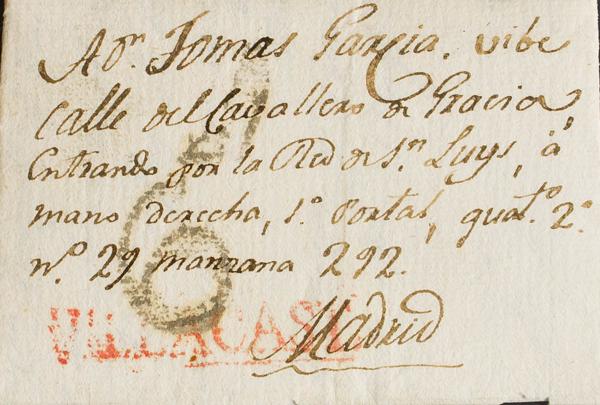 A Dn. Tomas Garcia. vibe
Calle del Cavallero de Gracia,
Entrando por la Red de Sn. Luys, á
mano derecha, 1.º Portal, quat.º 2.º
n.º 29 manzana 292.
Madrid
6